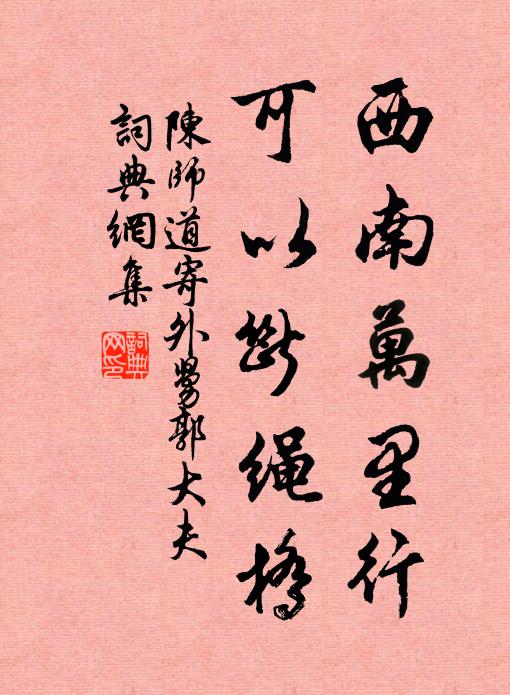 西南萬里行
可以斷繩橋
陳師道寄外舅郭大夫
詞典網集
詞典
网印